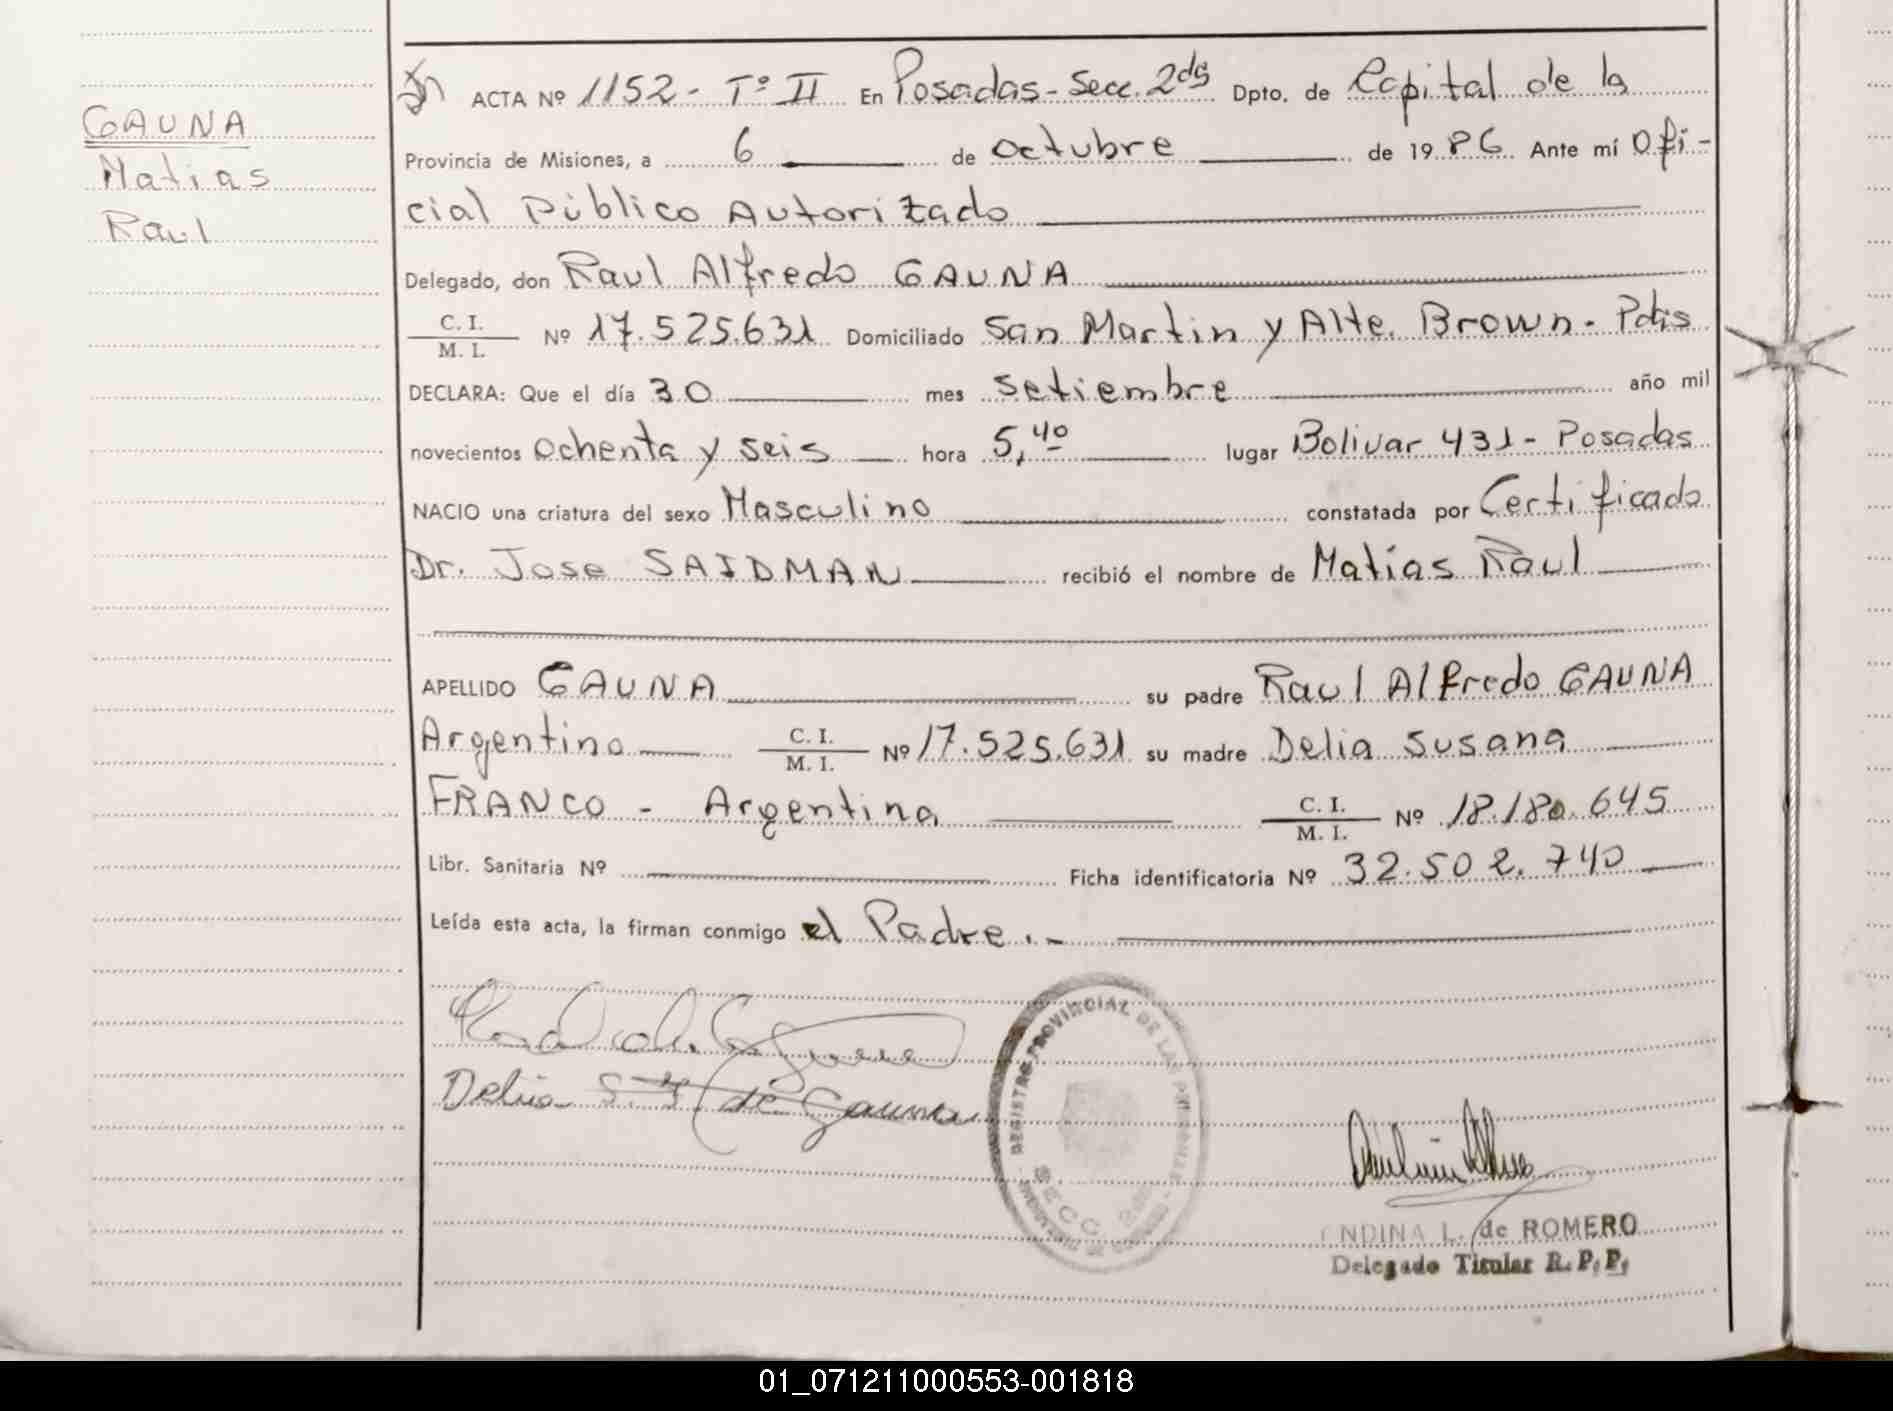 GAUNA
Matias
Raul
ACTA Nº 1152 - Tº II En Posadas - Secc. 2da Dpto. de Capital de la
Provincia de Misiones, a 6 de octubre de 1986 Ante mí Ofi-
cial Público Autorizado
Delegado, don Raul Alfredo GAUNA
C. I.
M. I. Nº 17.525.631 Domiciliado San Martin y Alte. Brown - Pdas
DECLARA: Que el día 30 mes setiembre año mil
novecientos ochenta y seis hora 5,40 lugar Bolivar 431 - Posadas
NACIO una criatura del sexo Masculino constatada por Certificado
Dr. Jose SAIDMAN recibió el nombre de Matias Raul
APELLIDO GAUNA su padre Raul Alfredo GAUNA
Argentino C. I. M. I. Nº 17.525.631 su madre Delia Susana
FRANCO - Argentina C. I. M. I. Nº 18.180.645
Libr. Sanitaria Nº Ficha identificatoria Nº 32.502.740
Leída esta acta, la firman conmigo el Padre.-
Delia S. F. de Gauna
REGISTRO PROVINCIAL DE LAS PERSONAS
SECC. 2da
L. de ROMERO
Delegado Titular R. P. P.
01_071211000553-001818